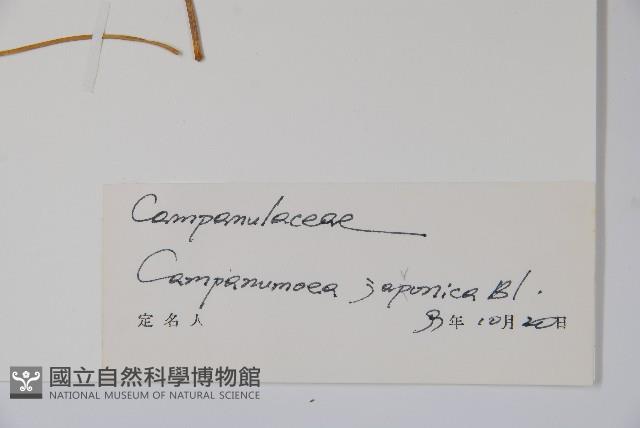 Campanulaceae
Campanumoea japonica Bl.
定名人 年 10月 20日
國立自然科學博物館
NATIONAL MUSEUM OF NATURAL SCIENCE